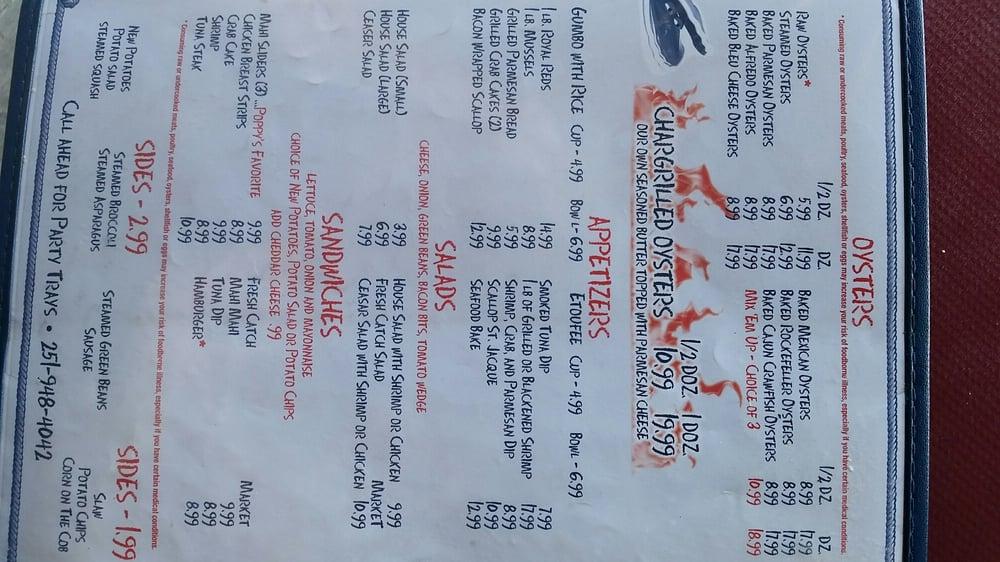 OYSTERS
*Consuming raw or undercooked meats, poultry, seafood, oysters, shellfish or eggs may increase your risk of foodborne illness, especially if you have certain medical conditions.
1/2 DZ. DZ. 1/2 DZ. DZ.
RAW OYSTERS* 5.99 11.99 BAKED MEXICAN OYSTERS 8.99 17.99
STEAMED OYSTERS 6.99 12.99 BAKED ROCKEFELLER OYSTERS 8.99 17.99
BAKED PARMESAN OYSTERS 8.99 17.99 BAKED CAJUN CRAWFISH OYSTERS 8.99 17.99
BAKED ALFREDO OYSTERS 8.99 17.99 MIX 'EM UP - CHOICE OF 3 10.99 18.99
BAKED BLEU CHEESE OYSTERS 8.99 17.99
1/2 DOZ. - 1 DOZ.
CHARGRILLED OYSTERS 10.99 19.99
OUR OWN SEASONED BUTTER TOPPED WITH PARMESAN CHEESE
APPETIZERS
GUMBO WITH RICE CUP - 4.99 BOWL - 6.99 ETOUFEE CUP - 4.99 BOWL - 6.99
1 LB. ROYAL REDS 14.99 SMOKED TUNA DIP 7.99
1 LB. MUSSELS 8.99 1 LB OF GRILLED OR BLACKENED SHRIMP 17.99
GRILLED PARMESAN BREAD 5.99 SHRIMP, CRAB AND PARMESAN DIP 8.99
GRILLED CRAB CAKES (2) 9.99 SCALLOP ST. JACQUE 10.99
BACON WRAPPED SCALLOP 12.99 SEAFOOD BAKE 12.99
SALADS
CHEESE, ONION, GREEN BEANS, BACON BITS, TOMATO WEDGE
HOUSE SALAD (SMALL) 3.99 HOUSE SALAD WITH SHRIMP OR CHICKEN 9.99
HOUSE SALAD (LARGE) 6.99 FRESH CATCH SALAD MARKET
CEASER SALAD 7.99 CEASAR SALAD WITH SHRIMP OR CHICKEN 10.99
SANDWICHES
LETTUCE, TOMATO, ONION AND MAYONNAISE
CHOICE OF NEW POTATOES, POTATO SALAD OR POTATO CHIPS
ADD CHEDDAR CHEESE .99
MAHI SLIDERS (3) ...POPPY'S FAVORITE 9.99 FRESH CATCH MARKET
CHICKEN BREAST STRIPS 8.99 MAHI MAHI 9.99
CRAB CAKE 9.99 TUNA DIP 8.99
SHRIMP 8.99 HAMBURGER* 8.99
TUNA STEAK 10.99
*Consuming raw or undercooked meats, poultry, seafood, oysters, shellfish or eggs may increase your risk of foodborne illness, especially if you have certain medical conditions.
SIDES - 2.99 SIDES - 1.99
NEW POTATOES STEAMED BROCCOLI STEAMED GREEN BEANS SLAW
POTATO SALAD STEAMED ASPARAGUS SAUSAGE POTATO CHIPS
STEAMED SQUASH CORN ON THE COB
CALL AHEAD FOR PARTY TRAYS • 251-948-4042